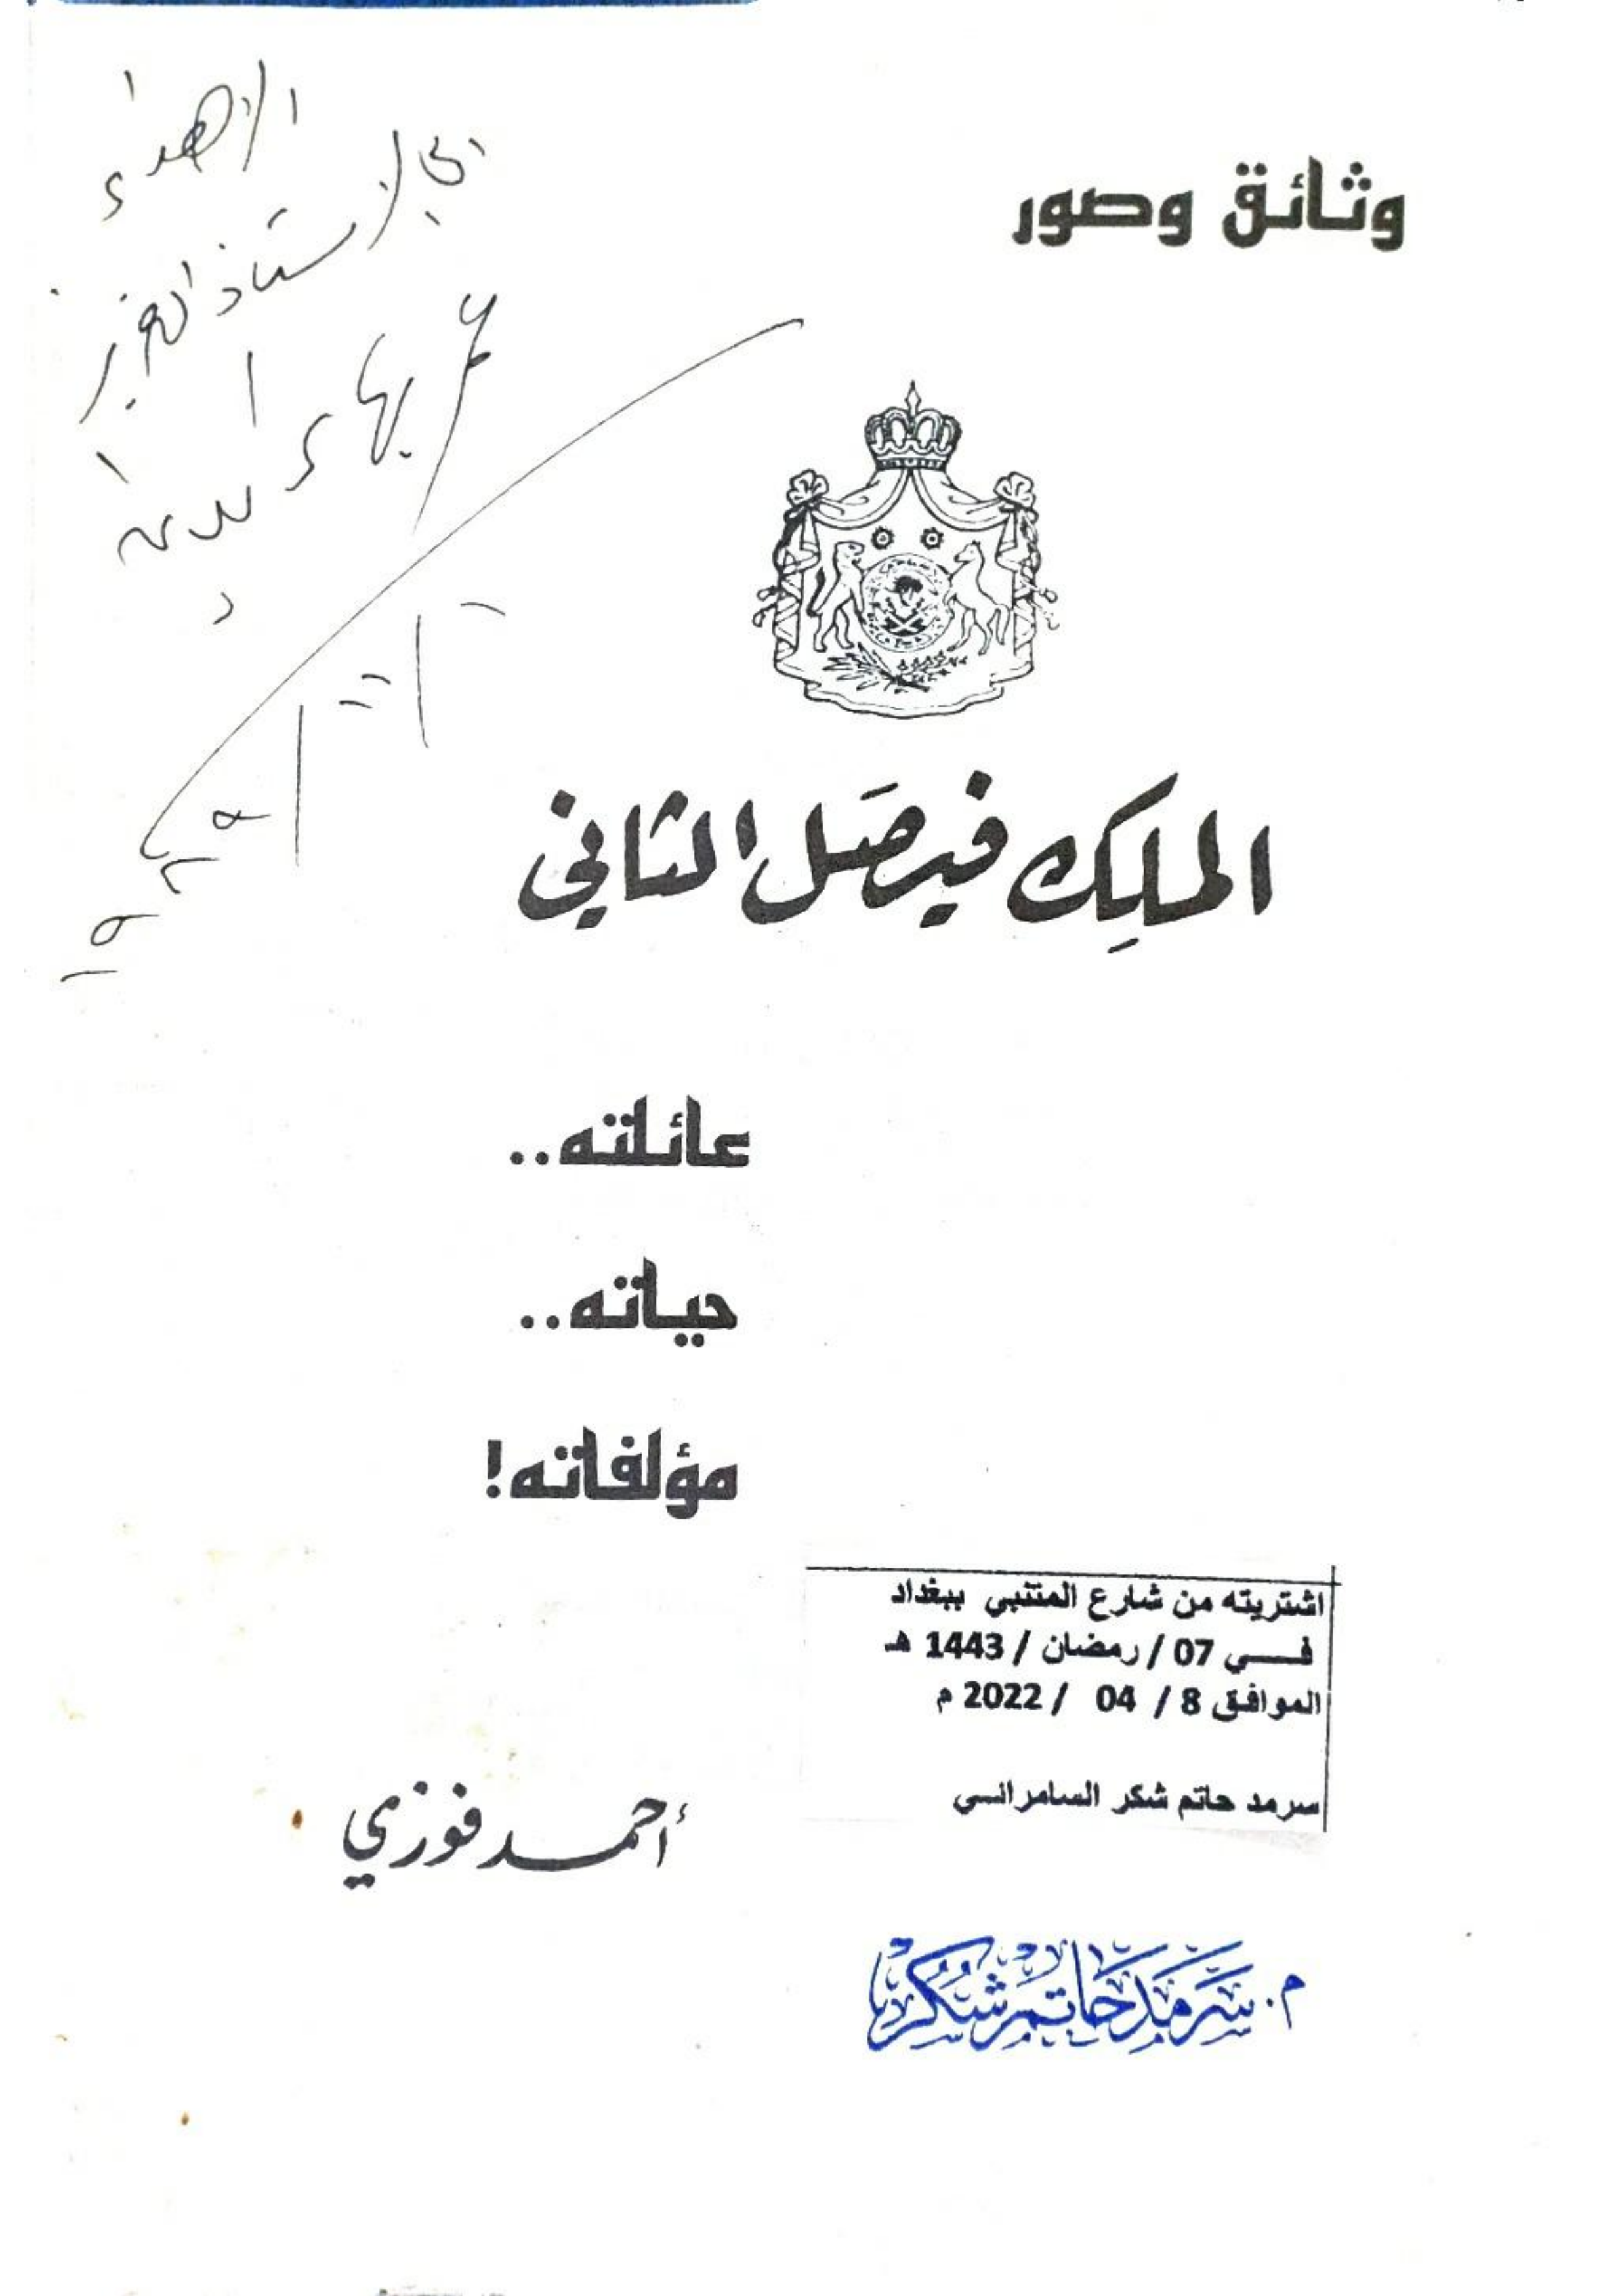 وثائق وصور
الاهداء
الى الاستاذ العزيز
بهاء الدين
الملك فيصَل الثاني
عائلته..
حياته..
مؤلفاته!
اشتريته من شارع المتنبي ببغداد
في 07 / رمضان / 1443 هـ
الموافق 8 / 04 / 2022 م
سرمد حاتم شكر السامرائي
أحمد فوزي
م. سرمد حاتم شكر